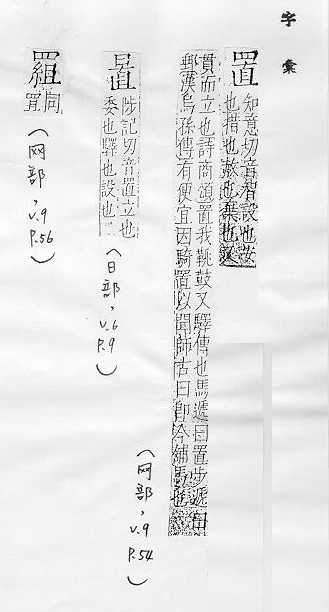 字彙
置
知意切音智設也安
也措也赦也棄也
貫而立也詩商頌置我鞉鼓又驛傳也馬遞曰置步遞曰
郵漢烏孫傳有便宜因騎置以聞師古曰即今鋪馬也
(网部,v.9 P.54)
陟記切音置立也
委也驛也設也
(日部,v.6 P.9)
同
(网部,v.9 P.56)